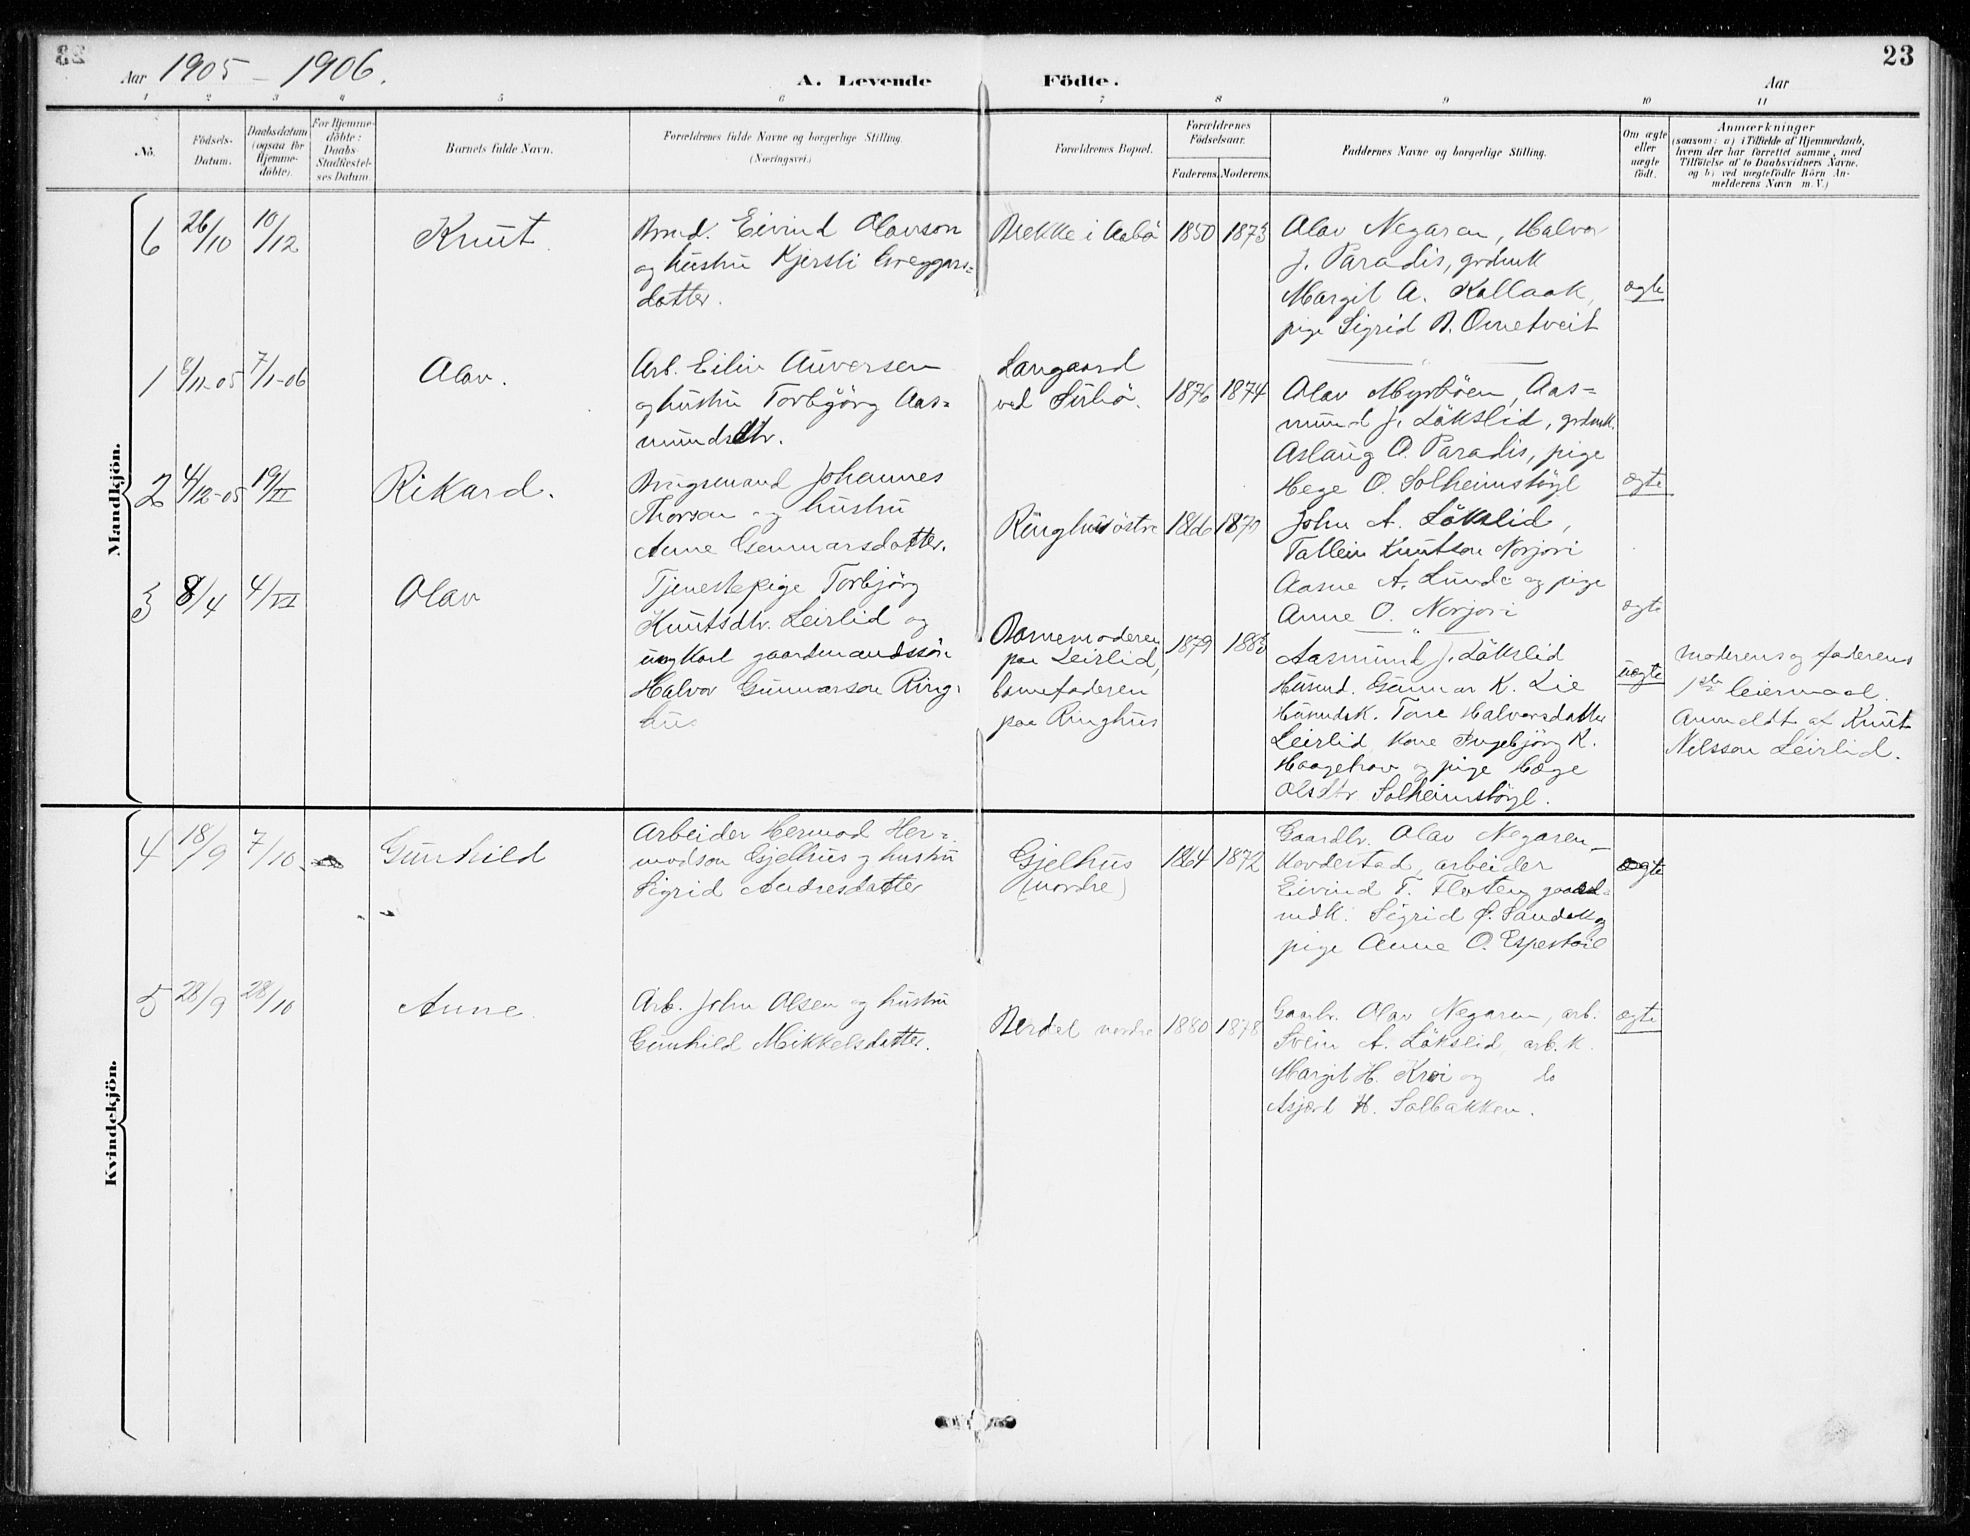 Aar 1905 - 1906.
A. Levende Födte.
Aar
23
1 2 3 4 5 6 7 8 9 10 11
No.
Födsels-
Datum.
Daabsdatum
(ogsaa for
Hjemme-
döbte).
For Hjemme-
döbte:
Daabs-
Stadfæstel-
ses Datum.
Barnets fulde Navn.
Forældrenes fulde Navne og borgerlige Stilling.
(Næringsvei.)
Forældrenes Bopæl.
Forældrenes
Födselsaar.
Faderens. Moderens.
Faddernes Navne og borgerlige Stilling.
Om ægte
eller
uægte
födt.
Anmærkninger
(saasom: a) i Tilfælde af Hjemmedaab,
hvem der har forrettet samme, med
Tilföielse af to Daabsvidners Navne,
og b) ved uægtefödte Börn An-
melderens Navn m. V.)
Mandkjön.
6 26/10 10/12 Knut.
Eivind Olavson
og hustru Kjersti Greggars=
datter.
Bakke i Aabö 1850 1873
Olav Negaren, Halvor
J. Paradis, grdmk
Margit A. Kallaak,
pige Sigrid B. Ornetveit
ægte
1 8/11-05 7/1-06 Olav.
Arb. Eiliv Auversen
og hustru Torbjörg Aas=
mundsdtr.
Langaard
ved 1876 1874
Olav Myrböen, Aas=
mund J. Lökslid, grdmk.
Aslaug O. Paradis, pige
Hege O. Solheimstöyl
ægte
2 4/12-05 19/II Rikard.
Brugsmand Johannes
Thorson og hustru
Anne Gunnarsdatter.
Ringhus östre 1866 1870
John A. Lökslid,
Tallein Knutson Norjori
Aasne A. Lunde og pige
Anne O. Norjori
ægte
3 8/4 4/VI Olav
Tjenestepige Torbjörg
Knutsdtr. Leirlid og
ungkarl gaardmandssön
Halvor Gunnarson Ring-
hus
Barnemoderen
paa Leirlid,
barnefaderen
paa Ringhus
1879 1883
Aasmund J. Lökslid
Husmd. Gunnar K. Lie
Husmdk. Tone Halvorsdatter
Leirlid, kone Ingebjörg K.
Haagetrav og pige Hæge
Olsdtr. Solheimstöyl.
uægte
Moderens og faderens
1ste leiermaal.
Anmeldt af Knut
Nilsson Leirlid.
Kvindekjön.
4 18/9 7/10 Gunhild
Arbeider Hermod Her=
modson Gjelhus og hustru
Sigrid Andresdatter
Gjelhus
(nordre)
1864 1872
Gaardbr. Olav Negaren-
arbeider
Eivind T. Flaten, gaard=
mdk. Sigrid J. Sandok og
pige Anne O. Espestöil
ægte
5 28/9 28/10 Anne
Arb. John Olsen og hustru
Gunhild Mikkelsdatter.
Berdal nordre 1880 1878
Gaarbr. Olav Negaren, arb.
Svein A. Lökslid, arb. k.
Margit H. Kroi og do
Asjerd H. Solbakken.
ægte